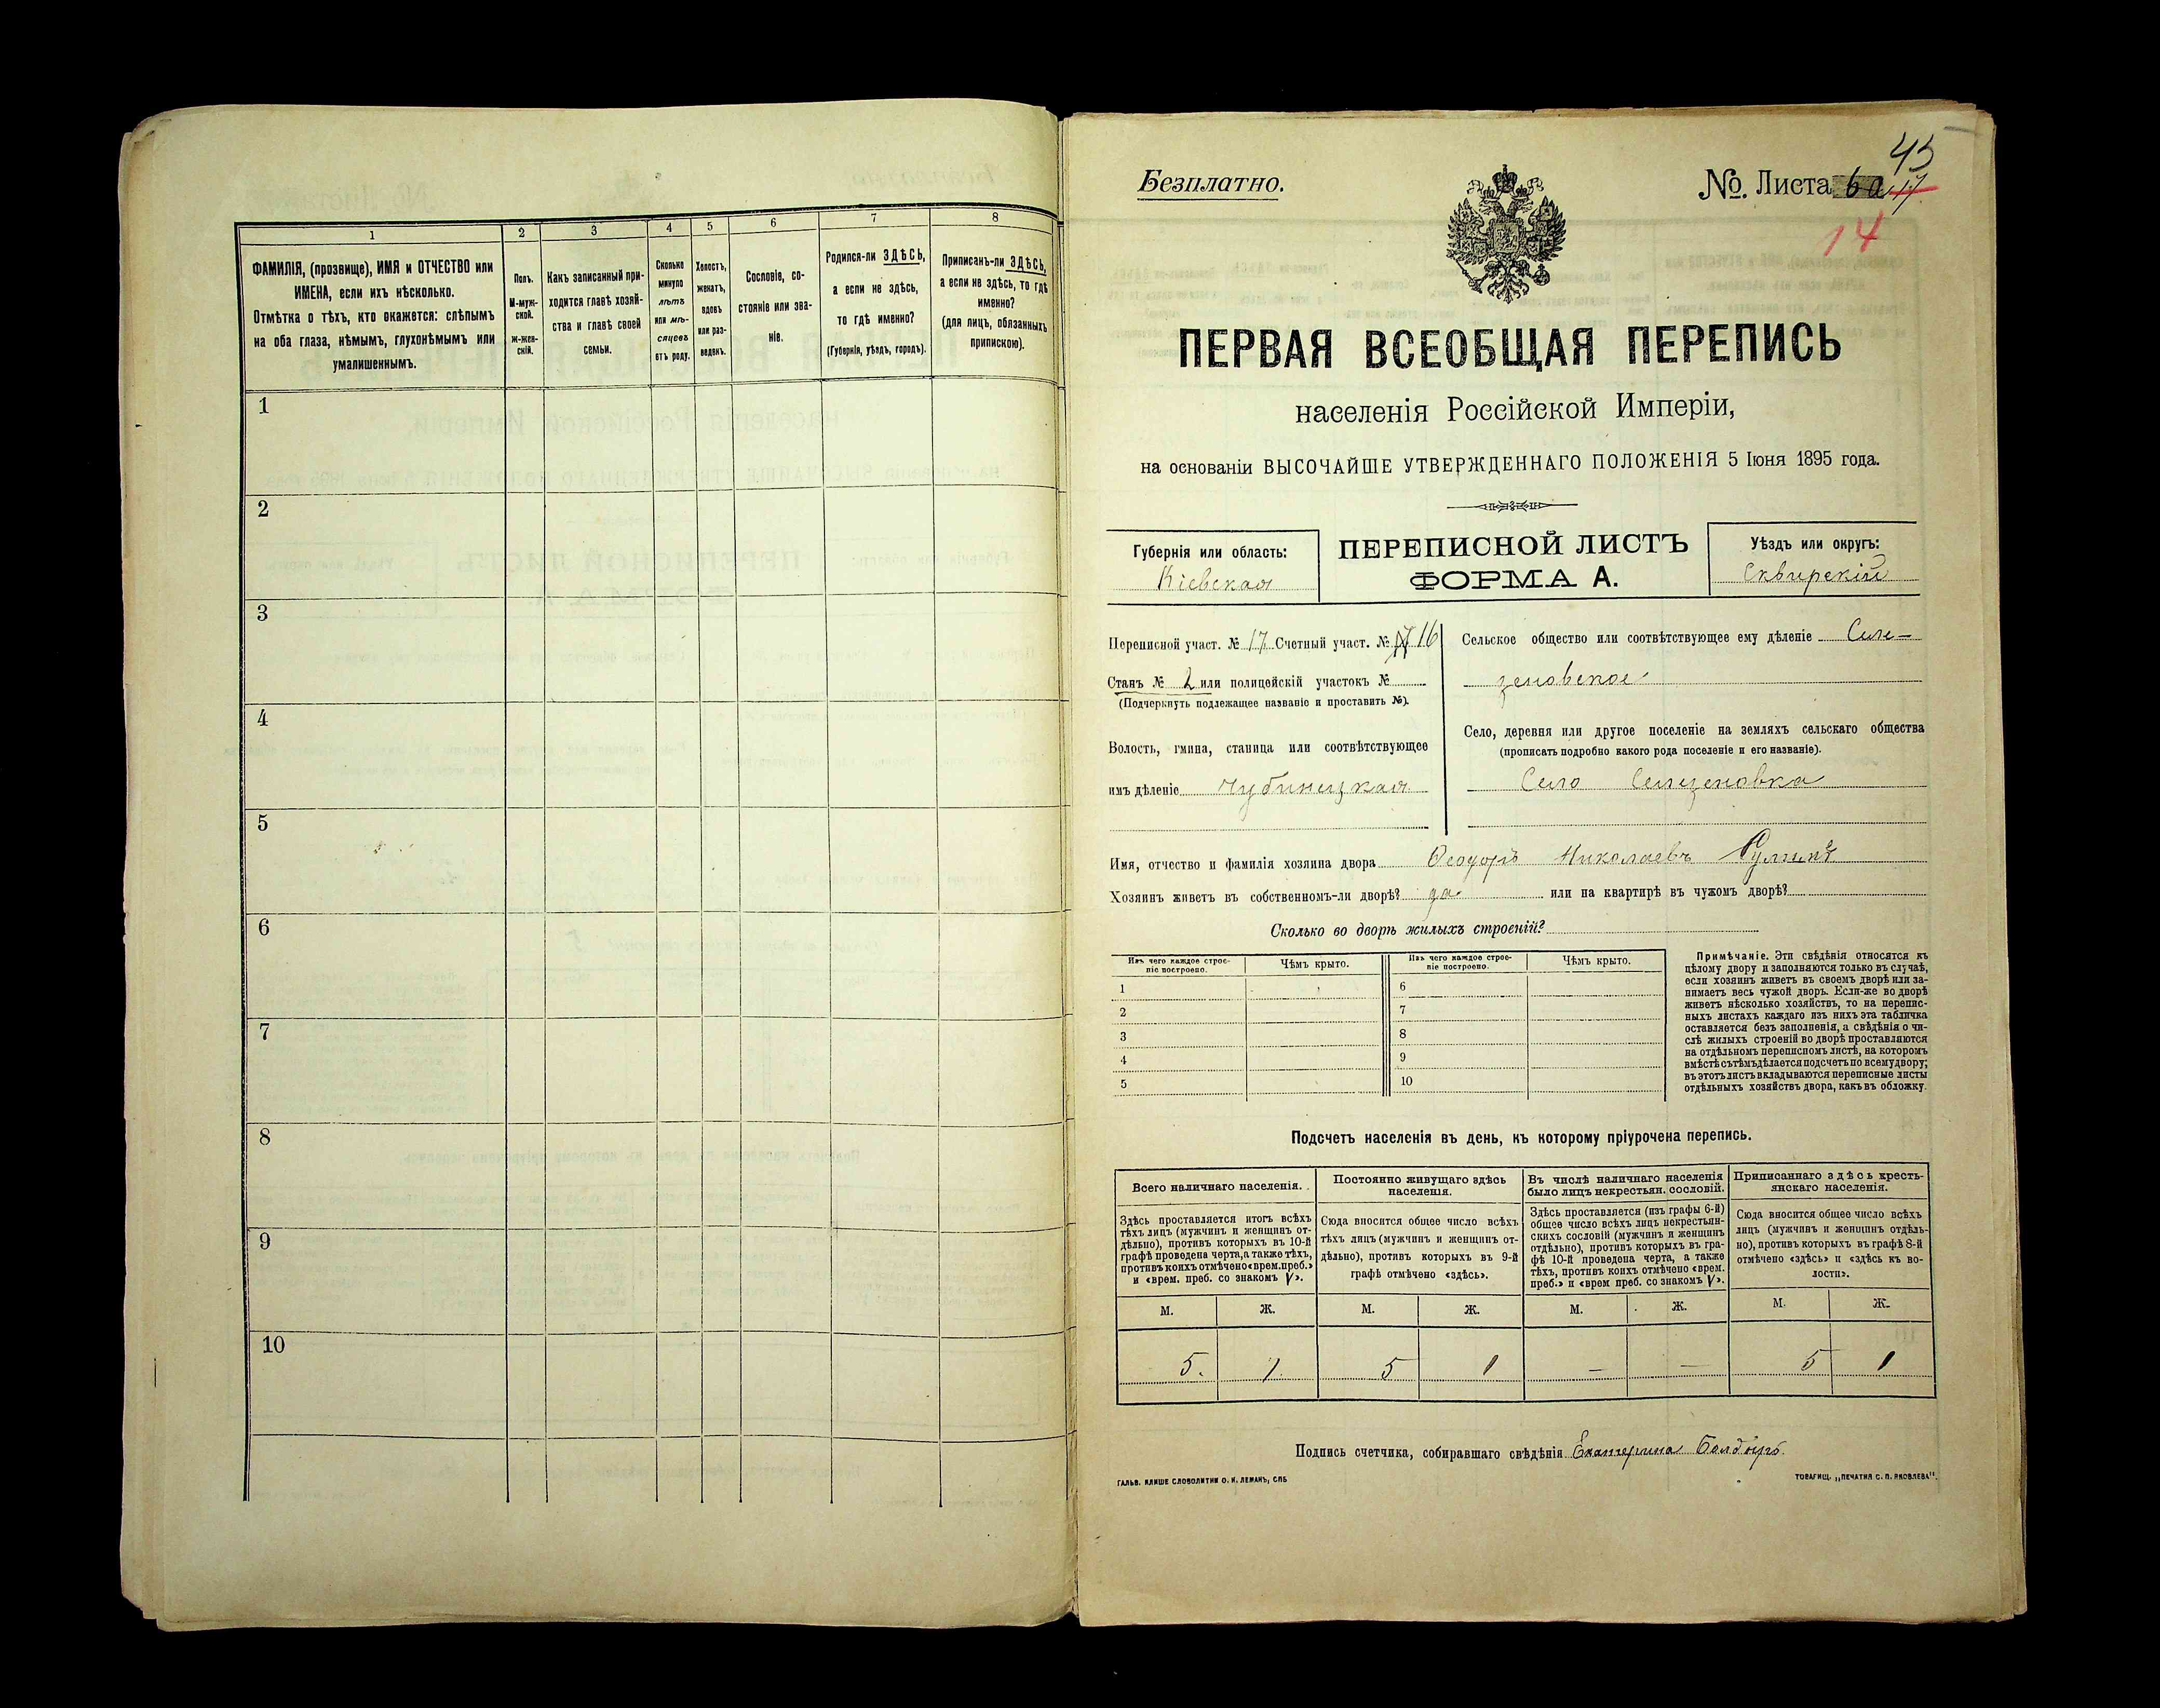 1
2
3
4
5
6
7
8
ФАМИЛІЯ, (прозвище), ИМЯ и ОТЧЕСТВО или
ИМЕНА, если ихъ нѣсколько.
Отмѣтка о тѣхъ, кто окажется: слѣпымъ
на оба глаза, нѣмымъ, глухонѣмымъ или
умалишеннымъ.
Полъ.
М-муж-
ской.
Ж-жен-
скій.
Какъ записанный при-
ходится главѣ хозяй-
ства и главѣ своей
семьи.
Сколько
минуло
лѣтъ
или мѣ-
сяцевъ
отъ роду.
Холостъ,
женатъ,
вдовъ
или раз-
веденъ.
Сословіе, со-
стояніе или зва-
ніе.
Родился-ли ЗДѢСЬ,
а если не здѣсь,
то гдѣ именно?
(Губернія, уѣздъ, городъ).
Приписанъ-ли ЗДѢСЬ,
а если не здѣсь, то гдѣ
именно?
(для лицъ, обязанныхъ
припискою).
1
2
3
4
5
6
7
8
9
10
45
Безплатно.
№ Листа 6а 17
14
ПЕРВАЯ ВСЕОБЩАЯ ПЕРЕПИСЬ
населенія Россійской Имперіи,
на основаніи ВЫСОЧАЙШЕ УТВЕРЖДЕННАГО ПОЛОЖЕНІЯ 5 Іюня 1895 года.
Губернія или область:
Кіевская
ПЕРЕПИСНОЙ ЛИСТЪ
ФОРМА А.
Уѣздъ или округъ:
Сквирскій
Переписной участ. № 17 Счетный участ. № 16
Станъ № 2 или полицейскій участокъ №
(Подчеркнуть подлежащее названіе и проставить №).
Волость, гмина, станица или соотвѣтствующее
имъ дѣленіе Чубинецкая
Сельское общество или соотвѣтствующее ему дѣленіе
Село, деревня или другое поселеніе на земляхъ сельскаго общества
(прописать подробно какого рода поселеніе и его названіе).
Село
Имя, отчество и фамилія хозяина двора Ѳеодоръ Николаевъ
Хозяинъ живетъ въ собственномъ-ли дворѣ? да или на квартирѣ въ чужомъ дворѣ?
Сколько во дворѣ жилыхъ строеній?
Изъ чего каждое строе-
ніе построено.
Чѣмъ крыто.
Изъ чего каждое строе-
ніе построено.
Чѣмъ крыто.
1
2
3
4
5
6
7
8
9
10
Примѣчаніе. Эти свѣдѣнія относятся къ
цѣлому двору и заполняются только въ случаѣ,
если хозяинъ живетъ въ своемъ дворѣ или за-
нимаетъ весь чужой дворъ. Если-же во дворѣ
живетъ нѣсколько хозяйствъ, то на перепис-
ныхъ листахъ каждаго изъ нихъ эта табличка
оставляется безъ заполненія, а свѣдѣнія о чи-
слѣ жилыхъ строеній во дворѣ проставляются
на отдѣльномъ переписномъ листѣ, на которомъ
вмѣстѣ съ тѣмъ дѣлается подсчетъ по всему двору;
въ этотъ листъ вкладываются переписные листы
отдѣльныхъ хозяйствъ двора, какъ въ обложку.
Подсчетъ населенія въ день, къ которому пріурочена перепись.
Всего наличнаго населенія.
Постоянно живущаго здѣсь
населенія.
Въ числѣ наличнаго населенія
было лицъ некрестьян. сословій.
Приписаннаго здѣсь кресть-
янскаго населенія.
Здѣсь проставляется итогъ всѣхъ
тѣхъ лицъ (мужчинъ и женщинъ от-
дѣльно), противъ которыхъ въ 10-й
графѣ проведена черта, а также тѣхъ,
противъ коихъ отмѣчено «врем. преб.»
и «врем. преб. со знакомъ V».
Сюда вносится общее число всѣхъ
тѣхъ лицъ (мужчинъ и женщинъ от-
дѣльно), противъ которыхъ въ 9-й
графѣ отмѣчено «здѣсь».
Здѣсь проставляется (изъ графы 6-й)
общее число всѣхъ лицъ некрестьян-
скихъ сословій (мужчинъ и женщинъ
отдѣльно), противъ которыхъ въ гра-
фѣ 10-й проведена черта, а также
тѣхъ, противъ коихъ отмѣчено «врем.
преб.» и «врем преб. со знакомъ V».
Сюда вносится общее число всѣхъ
лицъ (мужчинъ и женщинъ отдѣль-
но), противъ которыхъ въ графѣ 8-й
отмѣчено «здѣсь» и «здѣсь къ во-
лости».
М. Ж. М. Ж. М. Ж. М. Ж.
5. 1 5 1 — — 5 1
Подпись счетчика, собиравшаго свѣдѣнія Екатерина
ГАЛЬВ. КЛИШЕ СЛОВОЛИТНИ О. И. ЛЕМАНЪ, СПБ
ТОВАРИЩ. „ПЕЧАТНЯ С. П. ЯКОВЛЕВА".